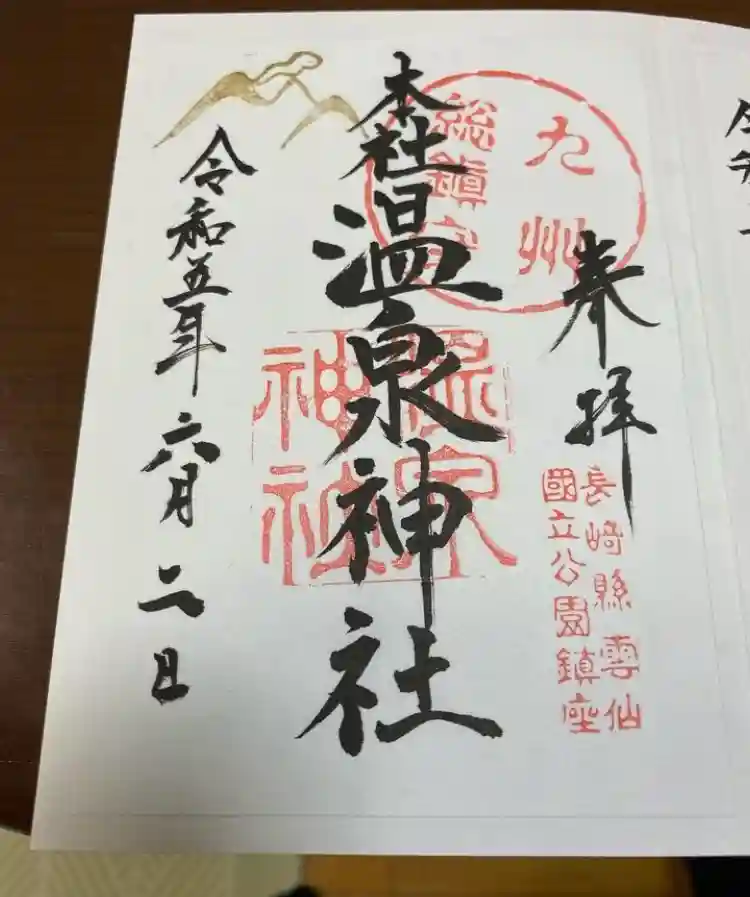 奉拝
九州
総鎮守
長崎縣雲仙
國立公園鎮座
本社
温泉神社
温泉
神社
令和五年六月二日
令和